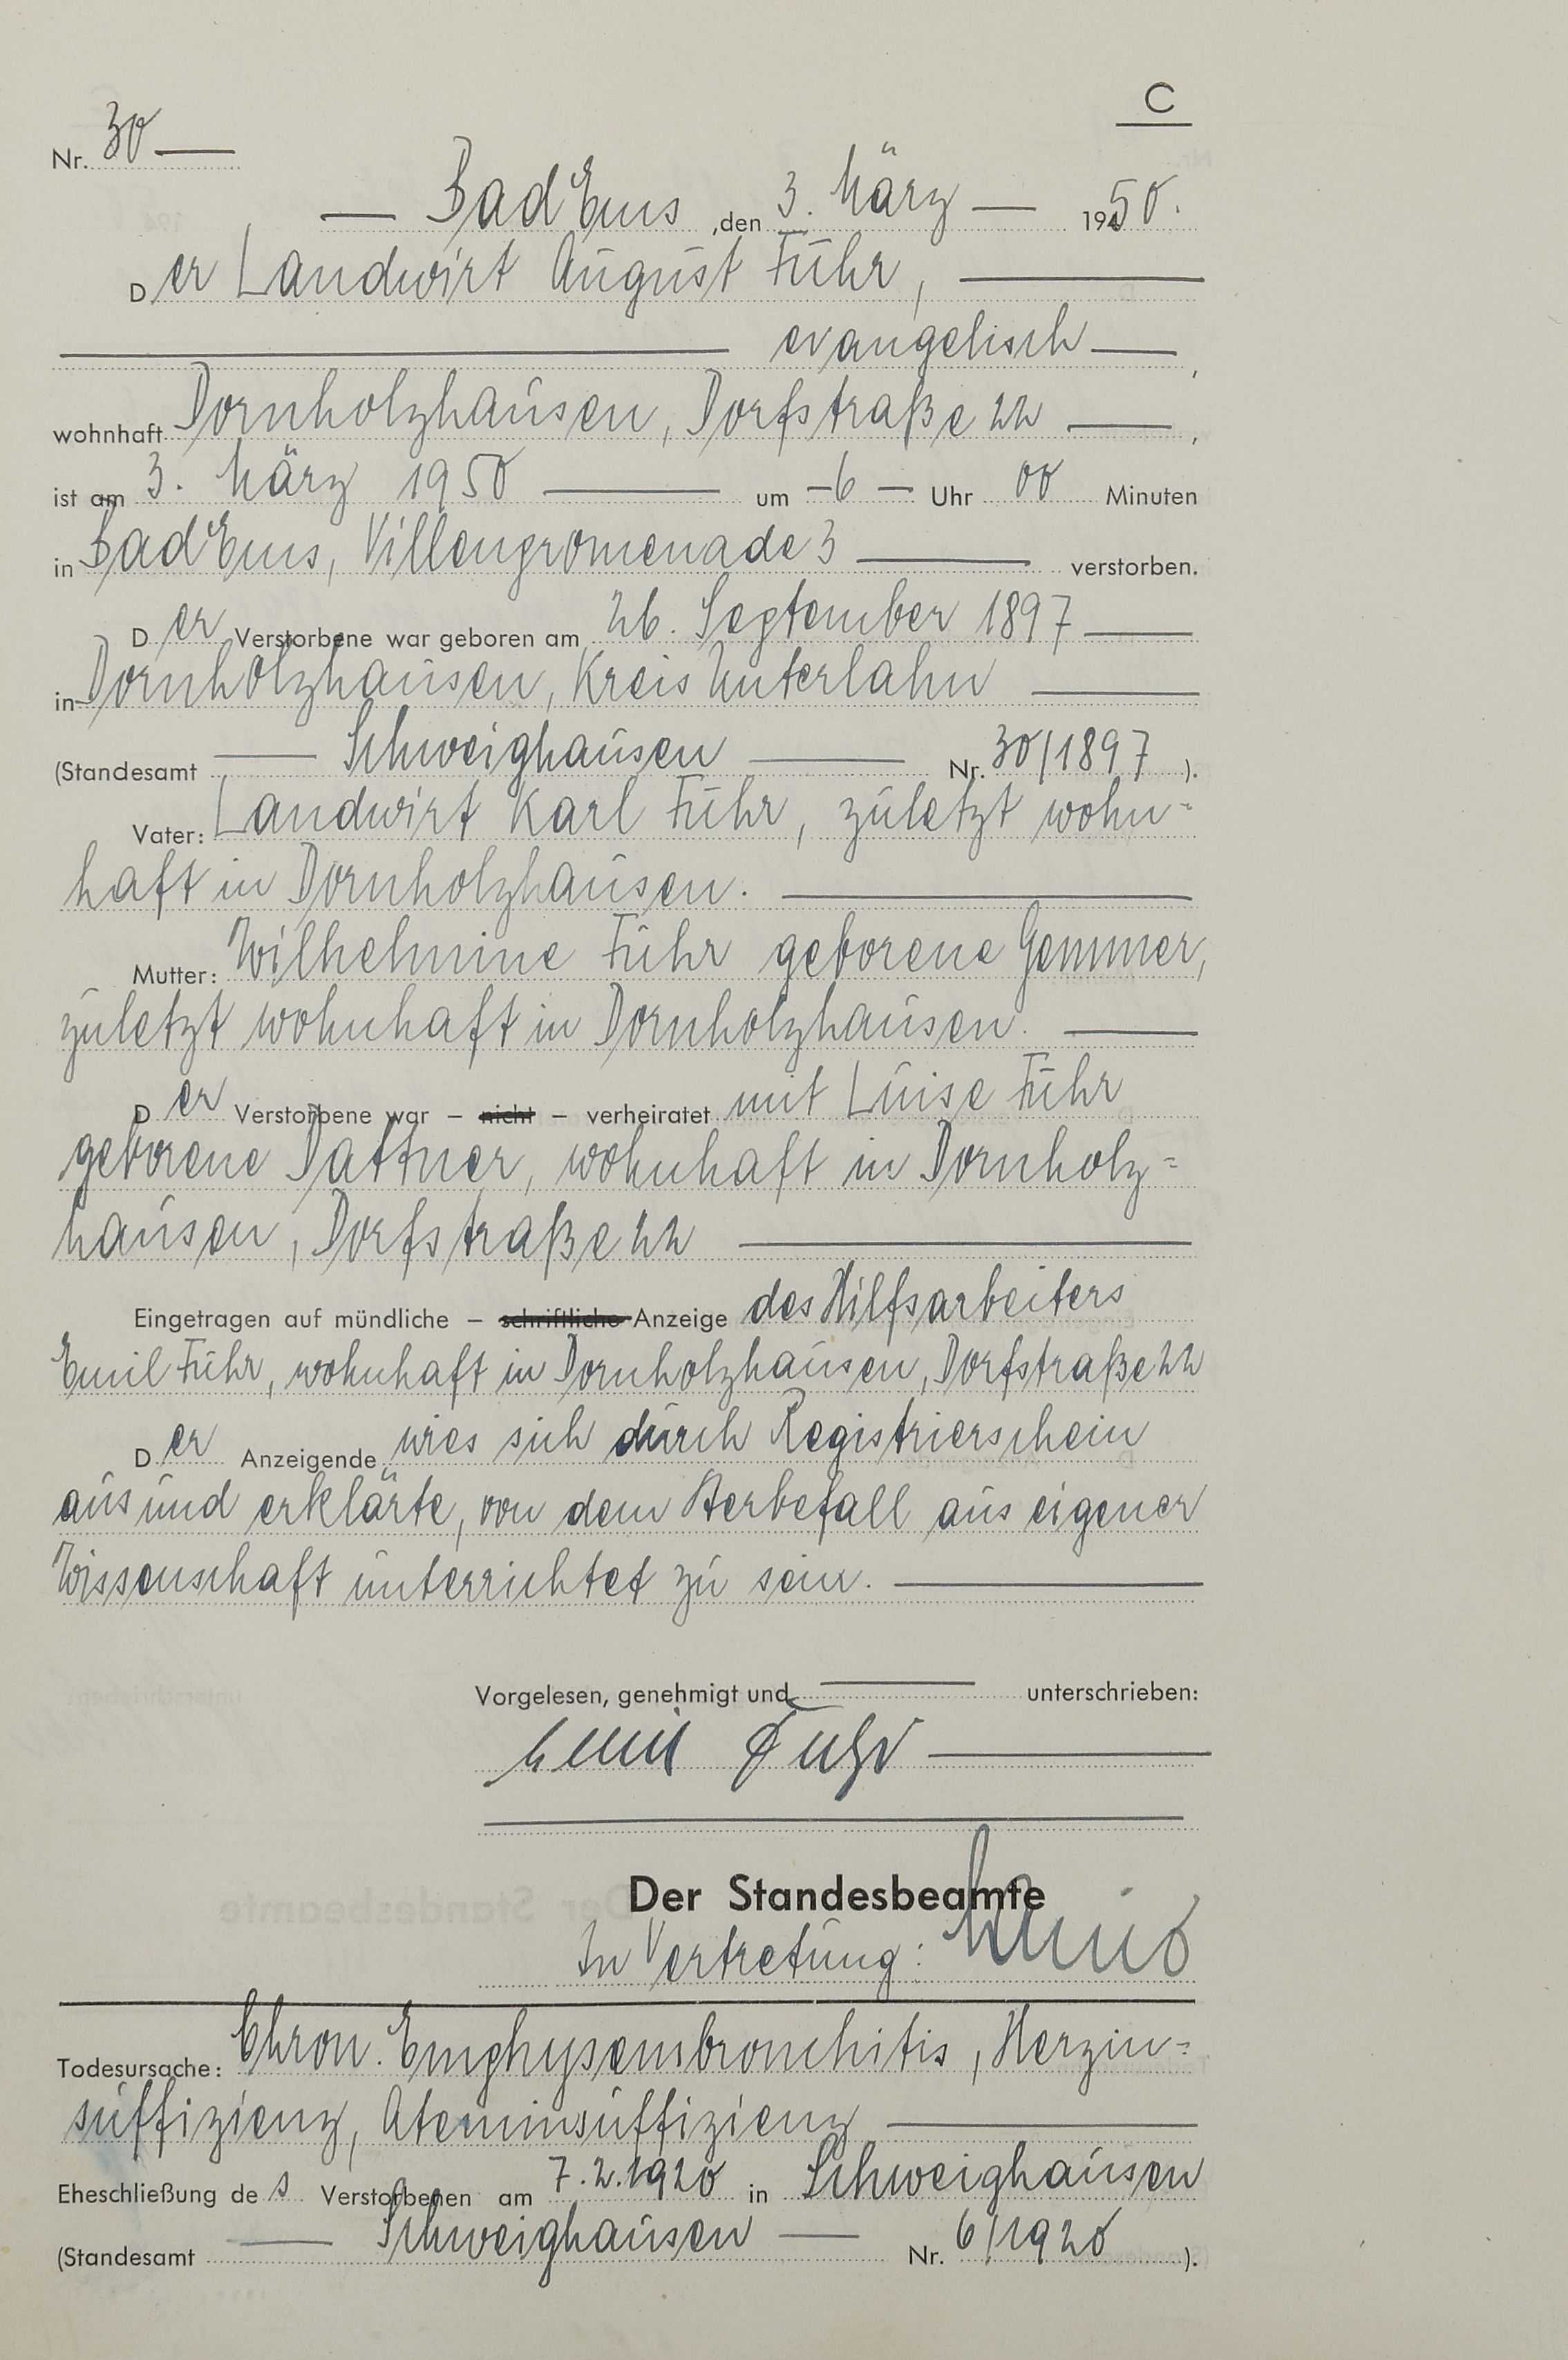 C
Nr. 30
Bad Ems, den 3. März 1950.
Der Landwirt August Fuhr,
evangelisch,
wohnhaft Dornholzhausen, Dorfstraße 22,
ist am 3. März 1950 um 6 Uhr 00 Minuten
in Bad Ems, Villenpromenade 3 verstorben.
Der Verstorbene war geboren am 26. September 1897
in Dornholzhausen, Kreis Unterlahn
(Standesamt Schweighausen Nr. 30/1897 ).
Vater: Landwirt Karl Fuhr, zuletzt wohn=
haft in Dornholzhausen.
Mutter: Wilhelmine Fuhr geborene Gemmer,
zuletzt wohnhaft in Dornholzhausen.
Der Verstorbene war – nicht – verheiratet mit Luise Fuhr
geborene Dattner, wohnhaft in Dornholz=
hausen, Dorfstraße 22
Eingetragen auf mündliche – schriftliche Anzeige des Hilfsarbeiters
Emil Fuhr, wohnhaft in Dornholzhausen, Dorfstraße 22
Der Anzeigende wies sich durch Registrierschein
aus und erklärte, von dem Sterbefall aus eigener
Wissenschaft unterrichtet zu sein.
Vorgelesen, genehmigt und unterschrieben:
Emil Fuhr
Der Standesbeamte
In Vertretung:
Todesursache: Chron. Emphysembronchitis, Herzin=
suffizienz, Ateminsuffizienz
Eheschließung des Verstorbenen am 7.2.1920 in Schweighausen
(Standesamt Schweighausen Nr. 6/1920 ).